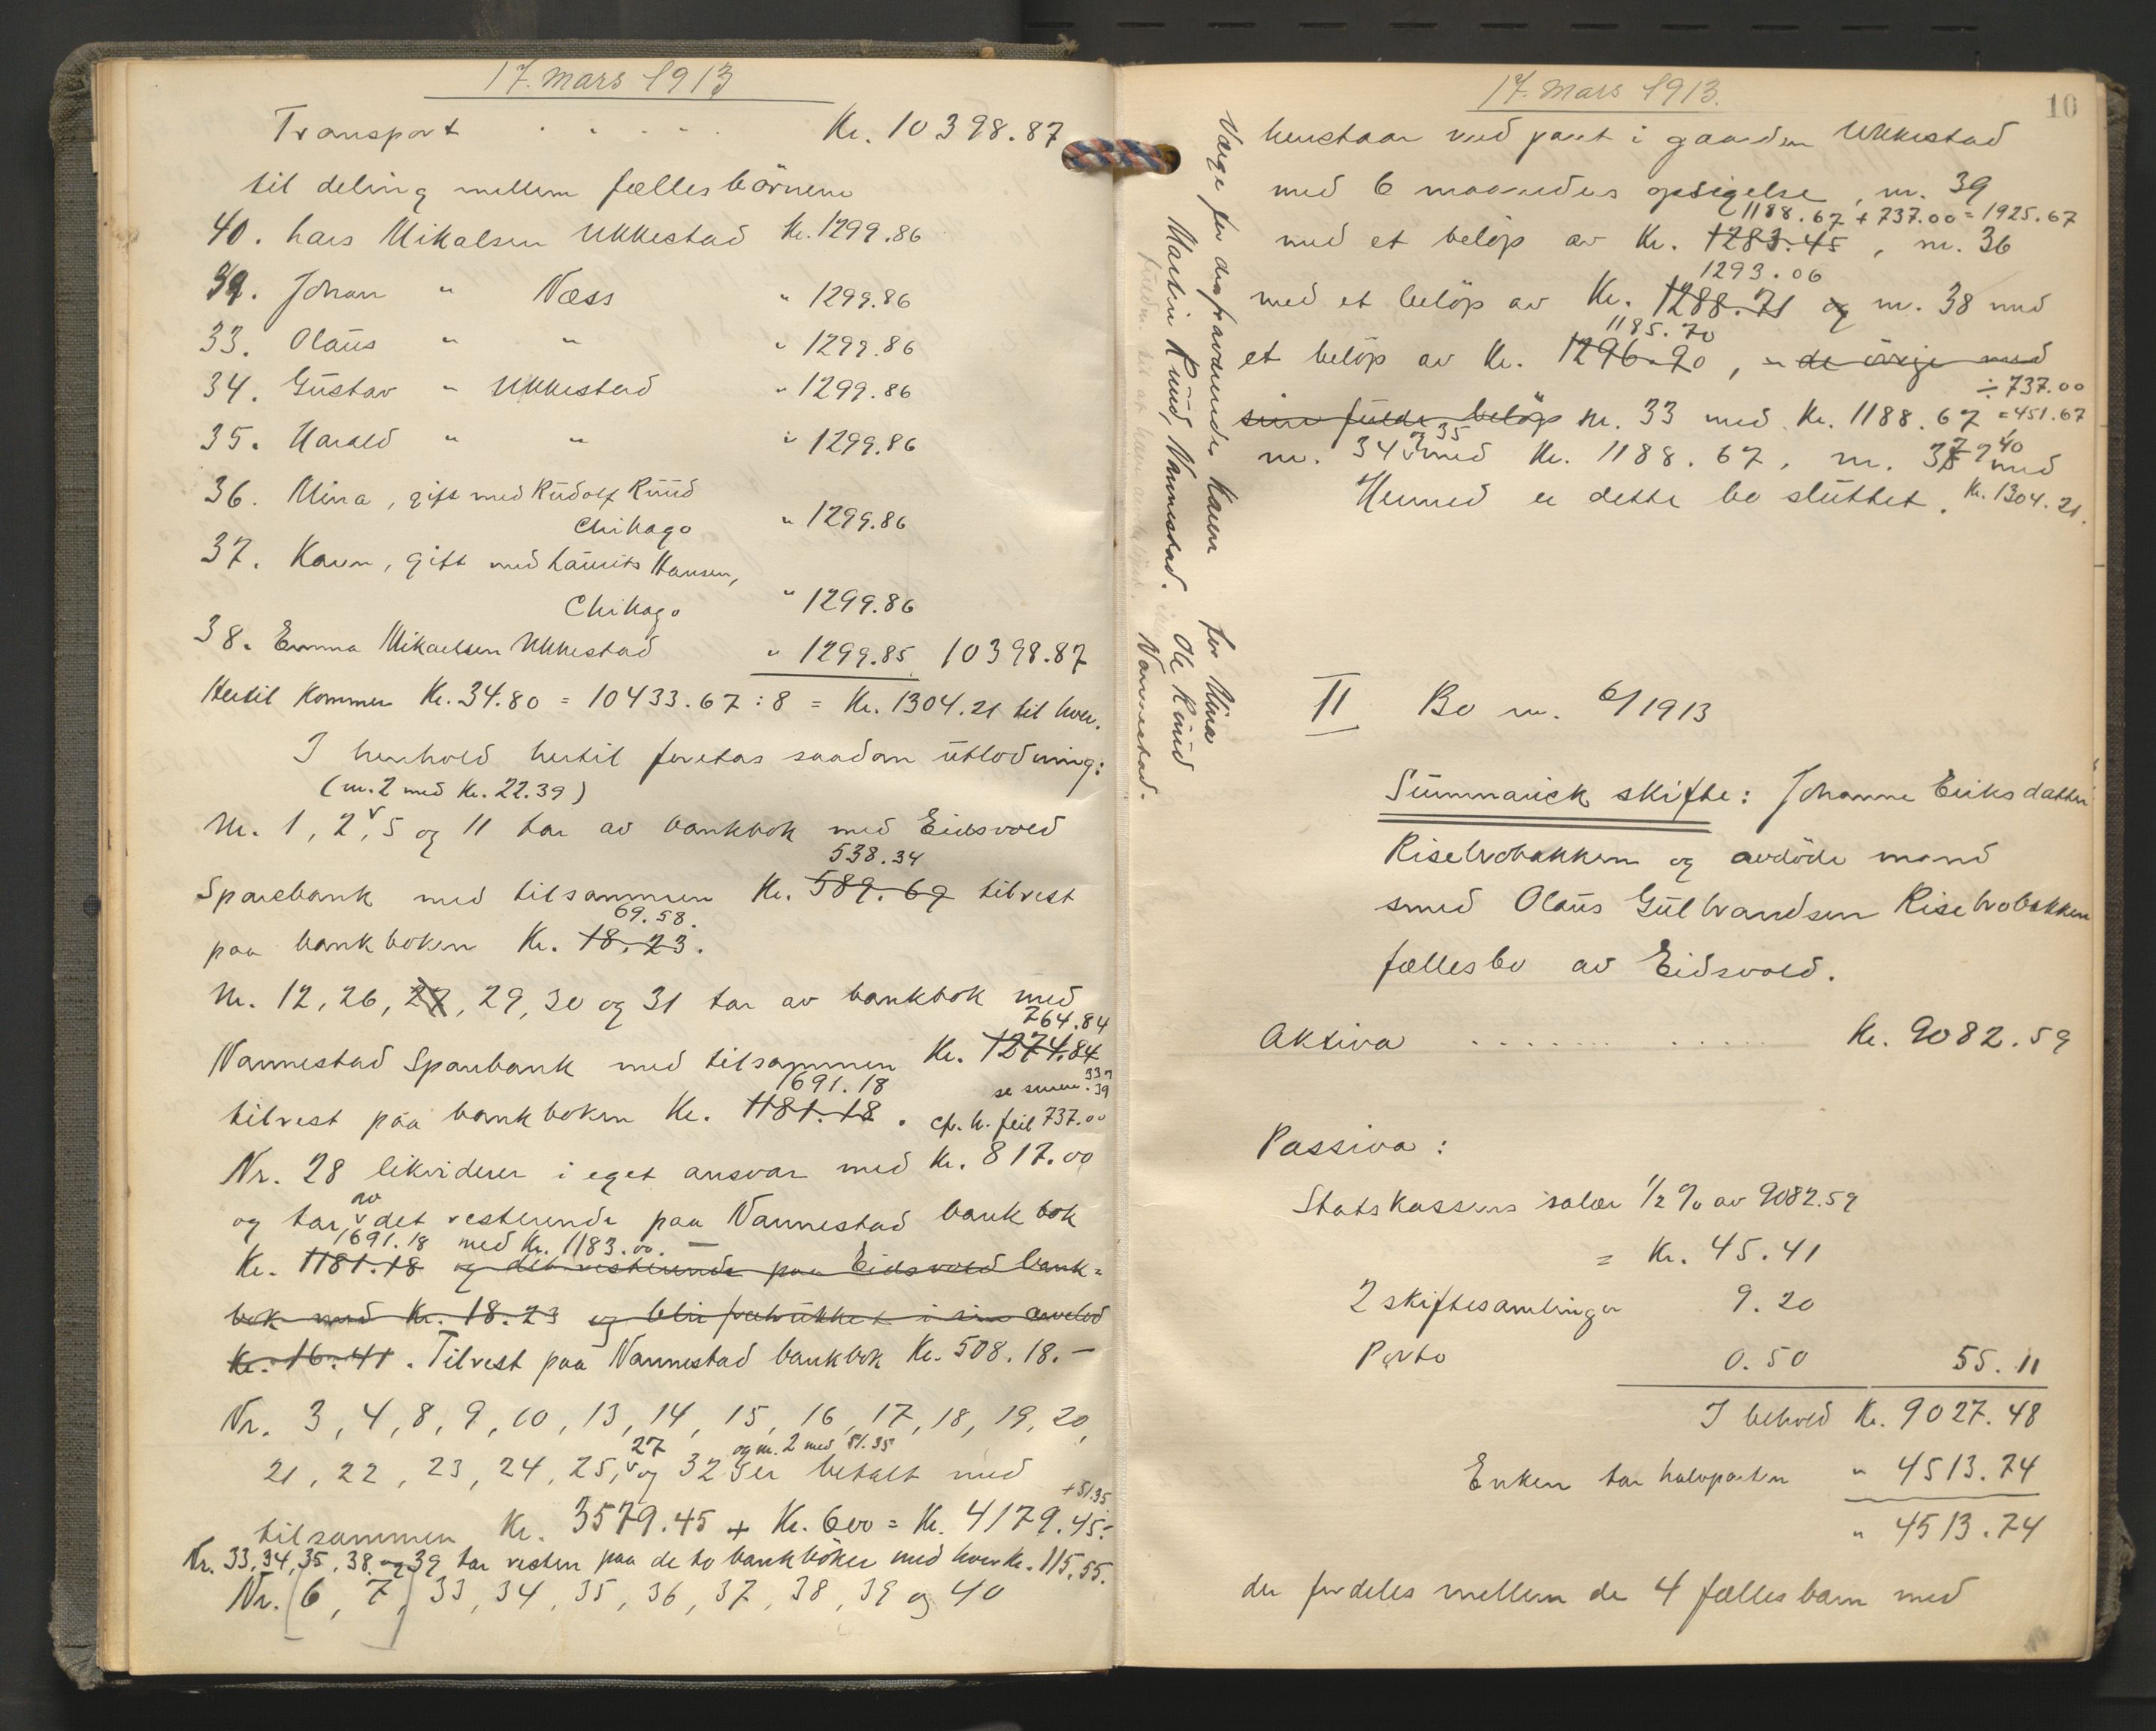 17. Mars 1913
Transport . . . . . Kr. 10398.87
til deling mellem fællesbörnene
40. Lars Mikalsen Ukkestad Kr. 1299.86
39. Johan " Næss " 1299.86
33. Olaus " " " 1299.86
34. Gustav " Ukkestad " 1299.86
35. Harald " " " 1299.86
36. Mina, gift med Rudolf Ruud
Chikago " 1299.86
37. Karen, gift med Laurits Hansen,
Chikago " 1299.86
38. Emma Mikaelsen Ukkestad " 1299.85 10398.87
Hertil kommer Kr. 34.80 = 10433.67 : 8 = Kr. 1304.21 til hver.
I henhold hertil foretas saadan utlodning:
(nr. 2 med Kr. 22.39)
Nr. 1, 2, 5 og 11 tar av bankbok med Eidsvold
538.34
Sparebank med tilsammen Kr. 589.69 tilrest
69.58.
paa bankboken Kr. 18.23.
Nr. 12, 26, 27, 29, 30 og 31 tar av bankbok med
764.84
Nannestad Sparebank med tilsammen Kr. 1274.84
1691.18
tilrest paa bankboken Kr. 1181.18. cfr. h. feil 737.00
Nr. 28 likviderer i eget ansvar med Kr. 817.00
og tar av det resterende paa Nannestad bankbok
1691.18 med Kr. 1183.00. —
Kr. 1181.18 og det resterende paa Eidsvold bank=
bok med Kr. 18.23 og blir fratrukket i sin arvelod
Kr. 16.41. Tilrest paa Nannestad bankbok Kr. 508.18. —
Nr. 3, 4, 8, 9, 10, 13, 14, 15, 16, 17, 18, 19, 20,
27 og nr. 2 med 51.35
21, 22, 23, 24, 25, og 32 er betalt med
+51.35
tilsammen Kr. 3579.45 + Kr. 600 = Kr. 4179.45.
Nr. 33, 34, 35, 38 og 39 tar resten paa de to bankböker med hver Kr. 115.55.
Nr. (6, 7,) 33, 34, 35, 36, 37, 38, 39 og 40
17. Mars 1913.
10
Værge for den fraværende Karen
Martin Ruud, Nannestad.
for Mina
Ole Ruud
Nannestad.
henstaar med pant i gaarden Ukkestad
med 6 maaneders opsigelse, nr. 39
1188.67 + 737.00 = 1925.67
med et belöp av Kr. 1283.45, nr. 36
1293.06
med et belöp av Kr. 1288.71 og nr. 38 med
1185.70
et belöp av Kr. 1296.90, " de övrige med
÷ 737.00
sine fulde belöp nr. 33 med Kr. 1188.67 = 451.67
nr. 34 og 35 med Kr. 1188.67, nr. 37 og 40 med
Hermed er dette bo sluttet. Kr. 1304.21.
II Bo nr. 6/1913
Summarisk skifte: Johanne Eriksdatter
Risebrobakken og avdöde mand
smed Olaus Gulbrandsen Risebrobakken
fællesbo av Eidsvold.
Aktiva . . . . . . . . . . Kr. 9082.59
Passiva:
Statskassens salær 1/2 % av 9082.59
= Kr. 45.41
2 skiftesamlinger 9.20
Porto 0.50 55.11
I behold Kr. 9027.48
Enken tar halvparten " 4513.74
" 4513.74
der fordeles mellem de 4 fællesbarn med